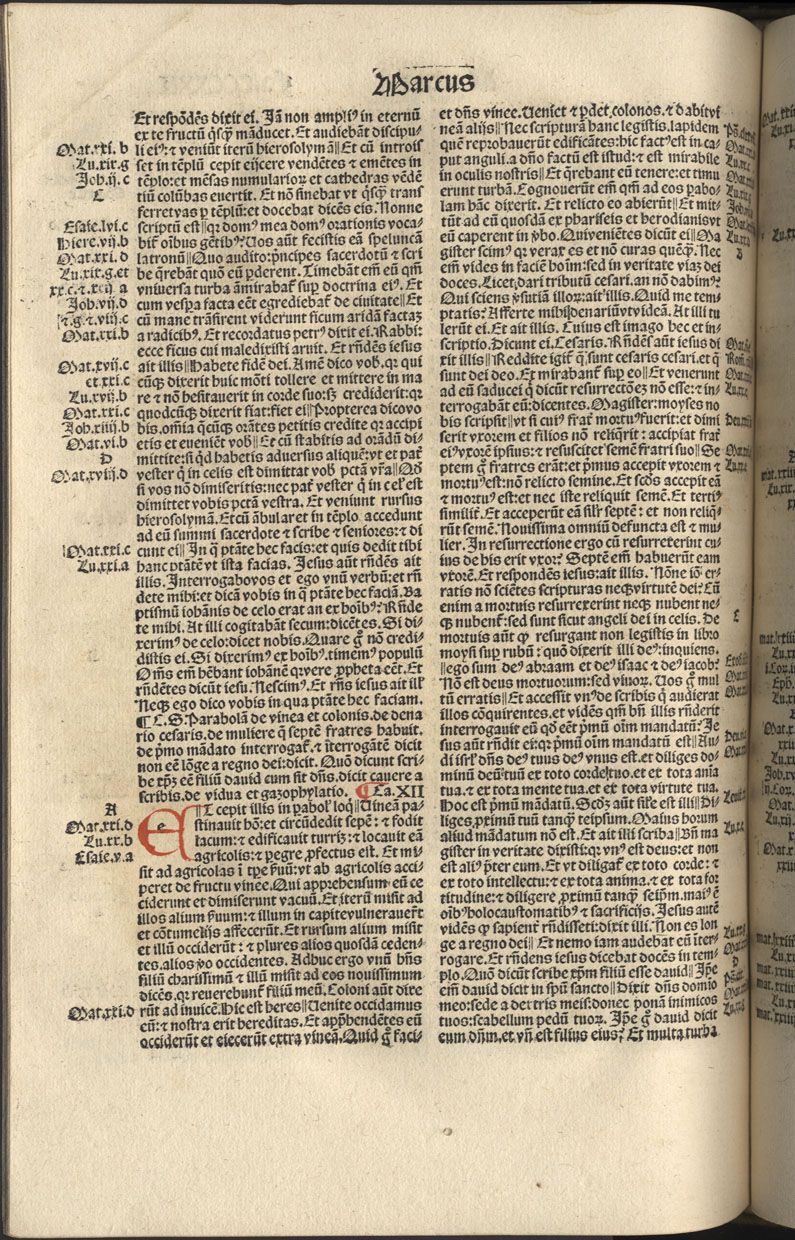 Marcus
Et respōdēs dixit ei. Jā non ampliꝰ in eternū
ex te fructū qͥsqȝ māducet. Et audiebāt discipu-
li eiꝰ: ⁊ veniūt iterū hierosolymā‖Et cū introis
set in tēplū cepit eijcere vendētes ⁊ emētes in
tēplo: et mēsas numularioꝝ et cathedras vēdē
tiū colūbas euertit. Et nō sinebat vt qͥsqȝ trans
ferret vas ꝑ tēplū: et docebat dicēs eis. Nonne
scriptū est‖qꝛ domꝰ mea domꝰ orationis voca-
bit̄ oībus gētibꝰ? Uos aūt fecistis eā speluncā
latronū‖Quo audito: pͥncipes sacerdotū ⁊ scri
be q̄rebāt quō eū ꝑderent. Timebāt em̄ eū qm̄
vniuersa turba āmirabat̄ suꝑ doctrina eiꝰ. Et
cum vespa facta eēt egrediebat̄ de ciuitate‖Et
cū mane trāsirent viderunt ficum aridā factaȝ
a radicibꝰ. Et recordatus petrꝰ dixit ei. Rabbi:
ecce ficus cui maledixisti aruit. Et rn̄dēs iesus
ait illis‖Habete fidē dei. Amē dico vob̄. qꝛ qui
cūqȝ dixerit huic mōti tollere et mittere in ma
re ⁊ nō hesitauerit in corde suo: sȝ crediderit: qꝛ
quodcūqȝ dixerit fiat: fiet ei‖Propterea dico vo
bis. omīa quecūqȝ orātes petitis credite qꝛ accipi
etis et eueniēt vob̄‖Et cū stabitis ad orādū di-
mittite: si qͥd habetis aduersus aliquē: vt et pat̄
vester qͥ in celis est dimittat vob̄ pctā vr̄a‖Qd̄
si vos nō dimiseritis: nec pat̄ vester qͥ in cel̄ est
dimittet vobis pctā vestra. Et veniunt rursus
hierosolymā. Et cū ābularet in tēplo accedunt
ad eū summi sacerdotes ⁊ scribe ⁊ seniores: ⁊ di
cunt ei‖In qͣ ptāte hec facis: et quis dedit tibi
hanc ptātē vt ista facias. Jesus aūt rn̄dēs ait
illis. Interrogabo vos et ego vnū verbū: et rn̄
dete mihi: et dicā vobis in qͣ ptāte hec faciā. Ba
ptismū iohānis de celo erat an ex hoībꝰ? Rn̄de
te mihi. At illi cogitabāt secum: dicētes. Si di-
xerimꝰ de celo: dicet nobis. Quare gͦ nō credi-
distis ei. Si dixerimꝰ ex hoībꝰ. timemꝰ populū
Om̄s em̄ hēbant iohānē qꝛ vere ꝓpheta eēt. Et
rn̄dētes dicūt iesu. Nescimꝰ. Et rn̄s iesus ait ill̄
Neqȝ ego dico vobis in qua ptāte hec faciam.
¶ C. S. Parabolā de vinea et colonis. de dena
rio cesaris. de muliere qͣ septē fratres habuit.
de pͥmo mādato interrogat̄. ⁊ īterrogātē dicit
non eē lōge a regno dei: dicit. Quō dicunt scri-
be xpm̄ eē filiū dauid cum sit dn̄s. dicit cauere a
scribis. de vidua et gazophylatio. ¶ Ca. XII
ET cepit illis in ꝑabol̄ loqͥ‖Uineā pa-
stinauit hō: et circūdedit sepē: ⁊ fodit
lacum: ⁊ edificauit turriȝ: ⁊ locauit eā
agricolis: ⁊ ꝑegre ꝓfectus est. Et mi-
sit ad agricolas ī tꝑe ẜuū: vt ab agricolis acci-
peret de fructu vinee. Qui apprehensum eū ce
ciderunt et dimiserunt vacuū. Et iterū misit ad
illos alium ẜuum: ⁊ illum in capite vulnerauerūt
et cōtumelijs affecerūt. Et rursum alium misit
et illū occiderūt: ⁊ plures alios quosdā ceden-
tes. alios ꝟo occidentes. Adhuc ergo vnū hn̄s
filiū charissimū ⁊ illū misit ad eos nouissimum
dicēs. qꝛ reuerebunt̄ filiū meū. Coloni aūt dixe
rūt ad inuicē. Hic est heres‖Uenite occidamus
eū: ⁊ nostra erit hereditas. Et appͥhendētes eū
occiderūt et eiecerūt extra vineā. Quid gͦ faci-
et dn̄s vinee. Ueniet ⁊ ꝑdet colonos. ⁊ dabit vi
neā alijs‖Nec scripturā hanc legistis. lapidem
quē reprobauerūt edificātes: hic factꝰ est in ca-
put anguli. a dn̄o factū est istud: ⁊ est mirabile
in oculis nostris‖Et q̄rebant eū tenere: et timu
erunt turbā. Cognouerūt em̄ qm̄ ad eos pabo-
lam hāc dixerit. Et relicto eo abierūt‖Et mit-
tūt ad eū quosdā ex phariseis et herodianis vt
eū caperent in ꝟbo. Qui veniētes dicūt ei‖Ma
gister scimꝰ qꝛ verax es et nō curas quēqȝ. Nec
em̄ vides in faciē hoīm: sed in veritate viaȝ dei
doces. Licet dari tributū cesari. an nō dabimꝰ?
Qui sciens ꝟsutiā illoꝝ: ait illis. Quid me tem-
ptatis? Afferte mihi denariū vt videā. At illi tu
lerūt ei. Et ait illis. Cuius est imago hec et in-
scriptio. Dicunt ei. Cesaris. Rn̄dēs aūt iesus di
xit illis‖Reddite igit̄ qͣ sunt cesaris cesari. et qͣ
sunt dei deo. Et mirabant̄ suꝑ eo‖Et venerunt
ad eū saducei qͥ dicūt resurrectōeȝ nō esse: ⁊ in-
terrogabant eū: dicentes. Magister: moyses no
bis scripsit‖vt si cuiꝰ frat̄ mortuꝰ fuerit: et dimi
serit vxorem et filios nō reliqͥrit: accipiat frat̄
eiꝰ vxorē ipsius: ⁊ resuscitet semē fratri suo‖Se
ptem gͦ fratres erāt: et pͥmus accepit vxorem ⁊
mortuꝰ est: nō relicto semine. Et scd̄s accepit eā
⁊ mortuꝰ est: et nec iste reliquit semē. Et tertiꝰ
similit̄. Et acceperūt eā silr̄ septē: et non reliqͥ-
rūt semē. Nouissima omniū defuncta est ⁊ mu-
lier. In resurrectione ergo cū resurrexerint cu-
ius de his erit vxor? Septē em̄ habuerūt eam
vxorē. Et respondēs iesus: ait illis. Nōne iō er-
ratis nō sciētes scripturas neqȝ virtutē dei? Cū
enim a mortuis resurrexerint neqȝ nubent ne-
qȝ nubent̄: sed sunt sicut angeli dei in celis. De
mortuis aūt qꝙ resurgant non legistis in libro
moysi suꝑ rubū: quō dixerit illi deꝰ: inquiens.
‖ego sum deꝰ abraam et deꝰ isaac ⁊ deꝰ iacob?
Nō est deus mortuorum: sed viuoꝝ. Uos gͦ mul
tū erratis‖Et accessit vnꝰ de scribis qͥ audierat
illos cōquirentes. et vidēs qm̄ bn̄ illis rn̄derit
interrogauit eū qd̄ eēt pͥmū oīm mandatū. Je
sus aūt rn̄dit ei: qꝛ pͥmū oīm mandatū est‖Au-
di isrl̄ dn̄s deꝰ tuus deꝰ vnus est. et diliges do-
minū deū tuū ex toto corde tuo. et ex tota anīa
tua. ⁊ ex tota mente tua. et ex tota virtute tua.
Hoc est pͥmū mādatū. Scd̄ȝ aūt sil̄e est illi‖Di-
liges proximū tuū tanqȝ teipsum. Maius horum
aliud mādatum nō est. Et ait illi scriba‖Bn̄ ma
gister in veritate dixisti: qꝛ vnꝰ est deus: et non
est aliꝰ preter eum. Et vt diligat̄ ex toto corde: ⁊
ex toto intellectu: ⁊ ex tota anima. ⁊ ex tota for
titudine: ⁊ diligere proximū tanqȝ seip̄m. maiꝰ ē
oībꝰ holocaustomatibꝰ ⁊ sacrificijs. Jesus autē
vidēs qꝙ sapient̄ rn̄disset: dixit illi. Non es lon
ge a regno dei‖Et nemo iam audebat eū īter-
rogare. Et rn̄dens iesus dicebat docēs in tem-
plo. Quō dicūt scribe xpm̄ filiū esse dauid‖Ip̄e
em̄ dauid dicit in spū sancto‖Dixit dn̄s domio
meo: sede a dextris meis: donec ponā inimicos
tuos: scabellum pedū tuoꝝ. Ip̄e gͦ dauid dicit
eum dn̄m. et vn̄ est filius eius? Et multa turba
Mat. xxi. b
Lu. xix. g
Joh. ij. c
C
Esaie. lvi. c
Hiere. vij. b
Mat. xxi. d
Lu. xix. g. et
xx. c. ⁊. xxij. a
Joh. vij. d
⁊. g. ⁊. viij. c
Mat. xxi. b
Mat. xvij. c
et. xxi. c
Lu. xvij. b
Mat. xxi. c
Joh. xiiij. b
Mat. vi. b
D
Mat. xviij. d
Mat. xxi. c
Lu. xx. a
A
Mat. xxi. d
Lu. xx. b
Esaie. v. a
Mat. xxi. d